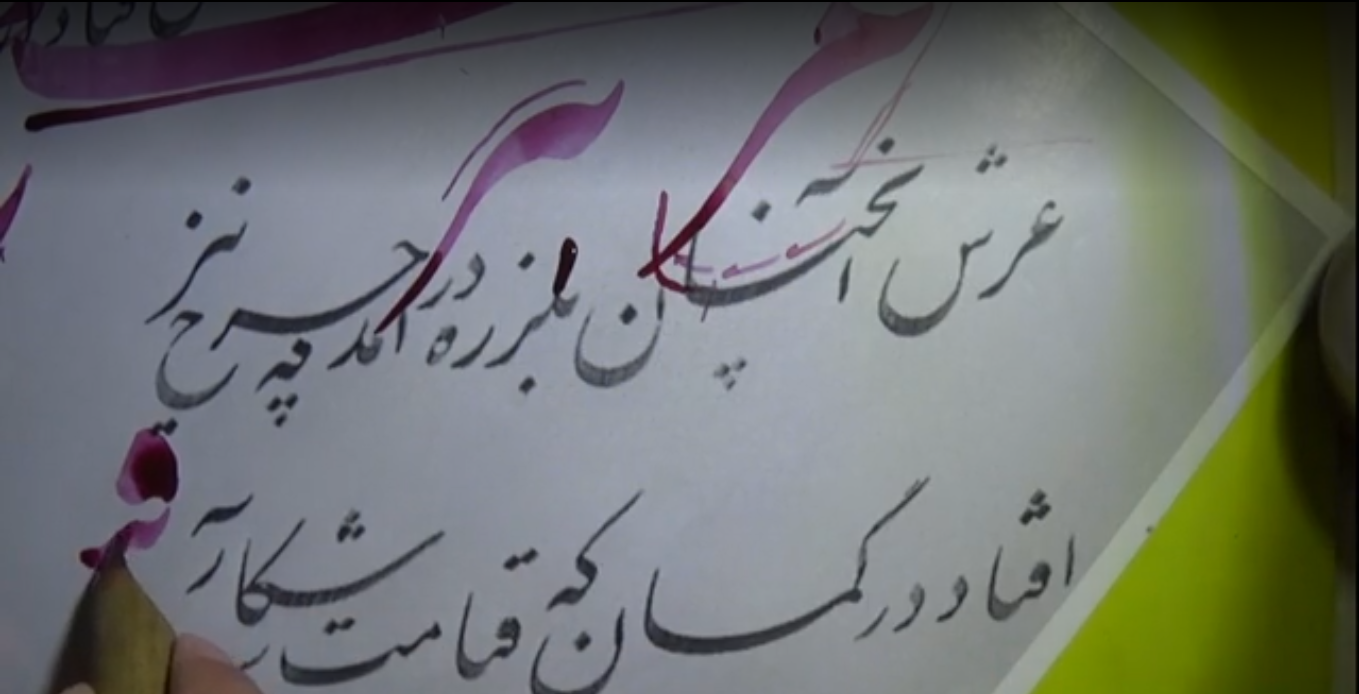 عرش آنچنان بلرزه در آمد که چرخ نیز
افتاد در گمان که قیامت آشکار